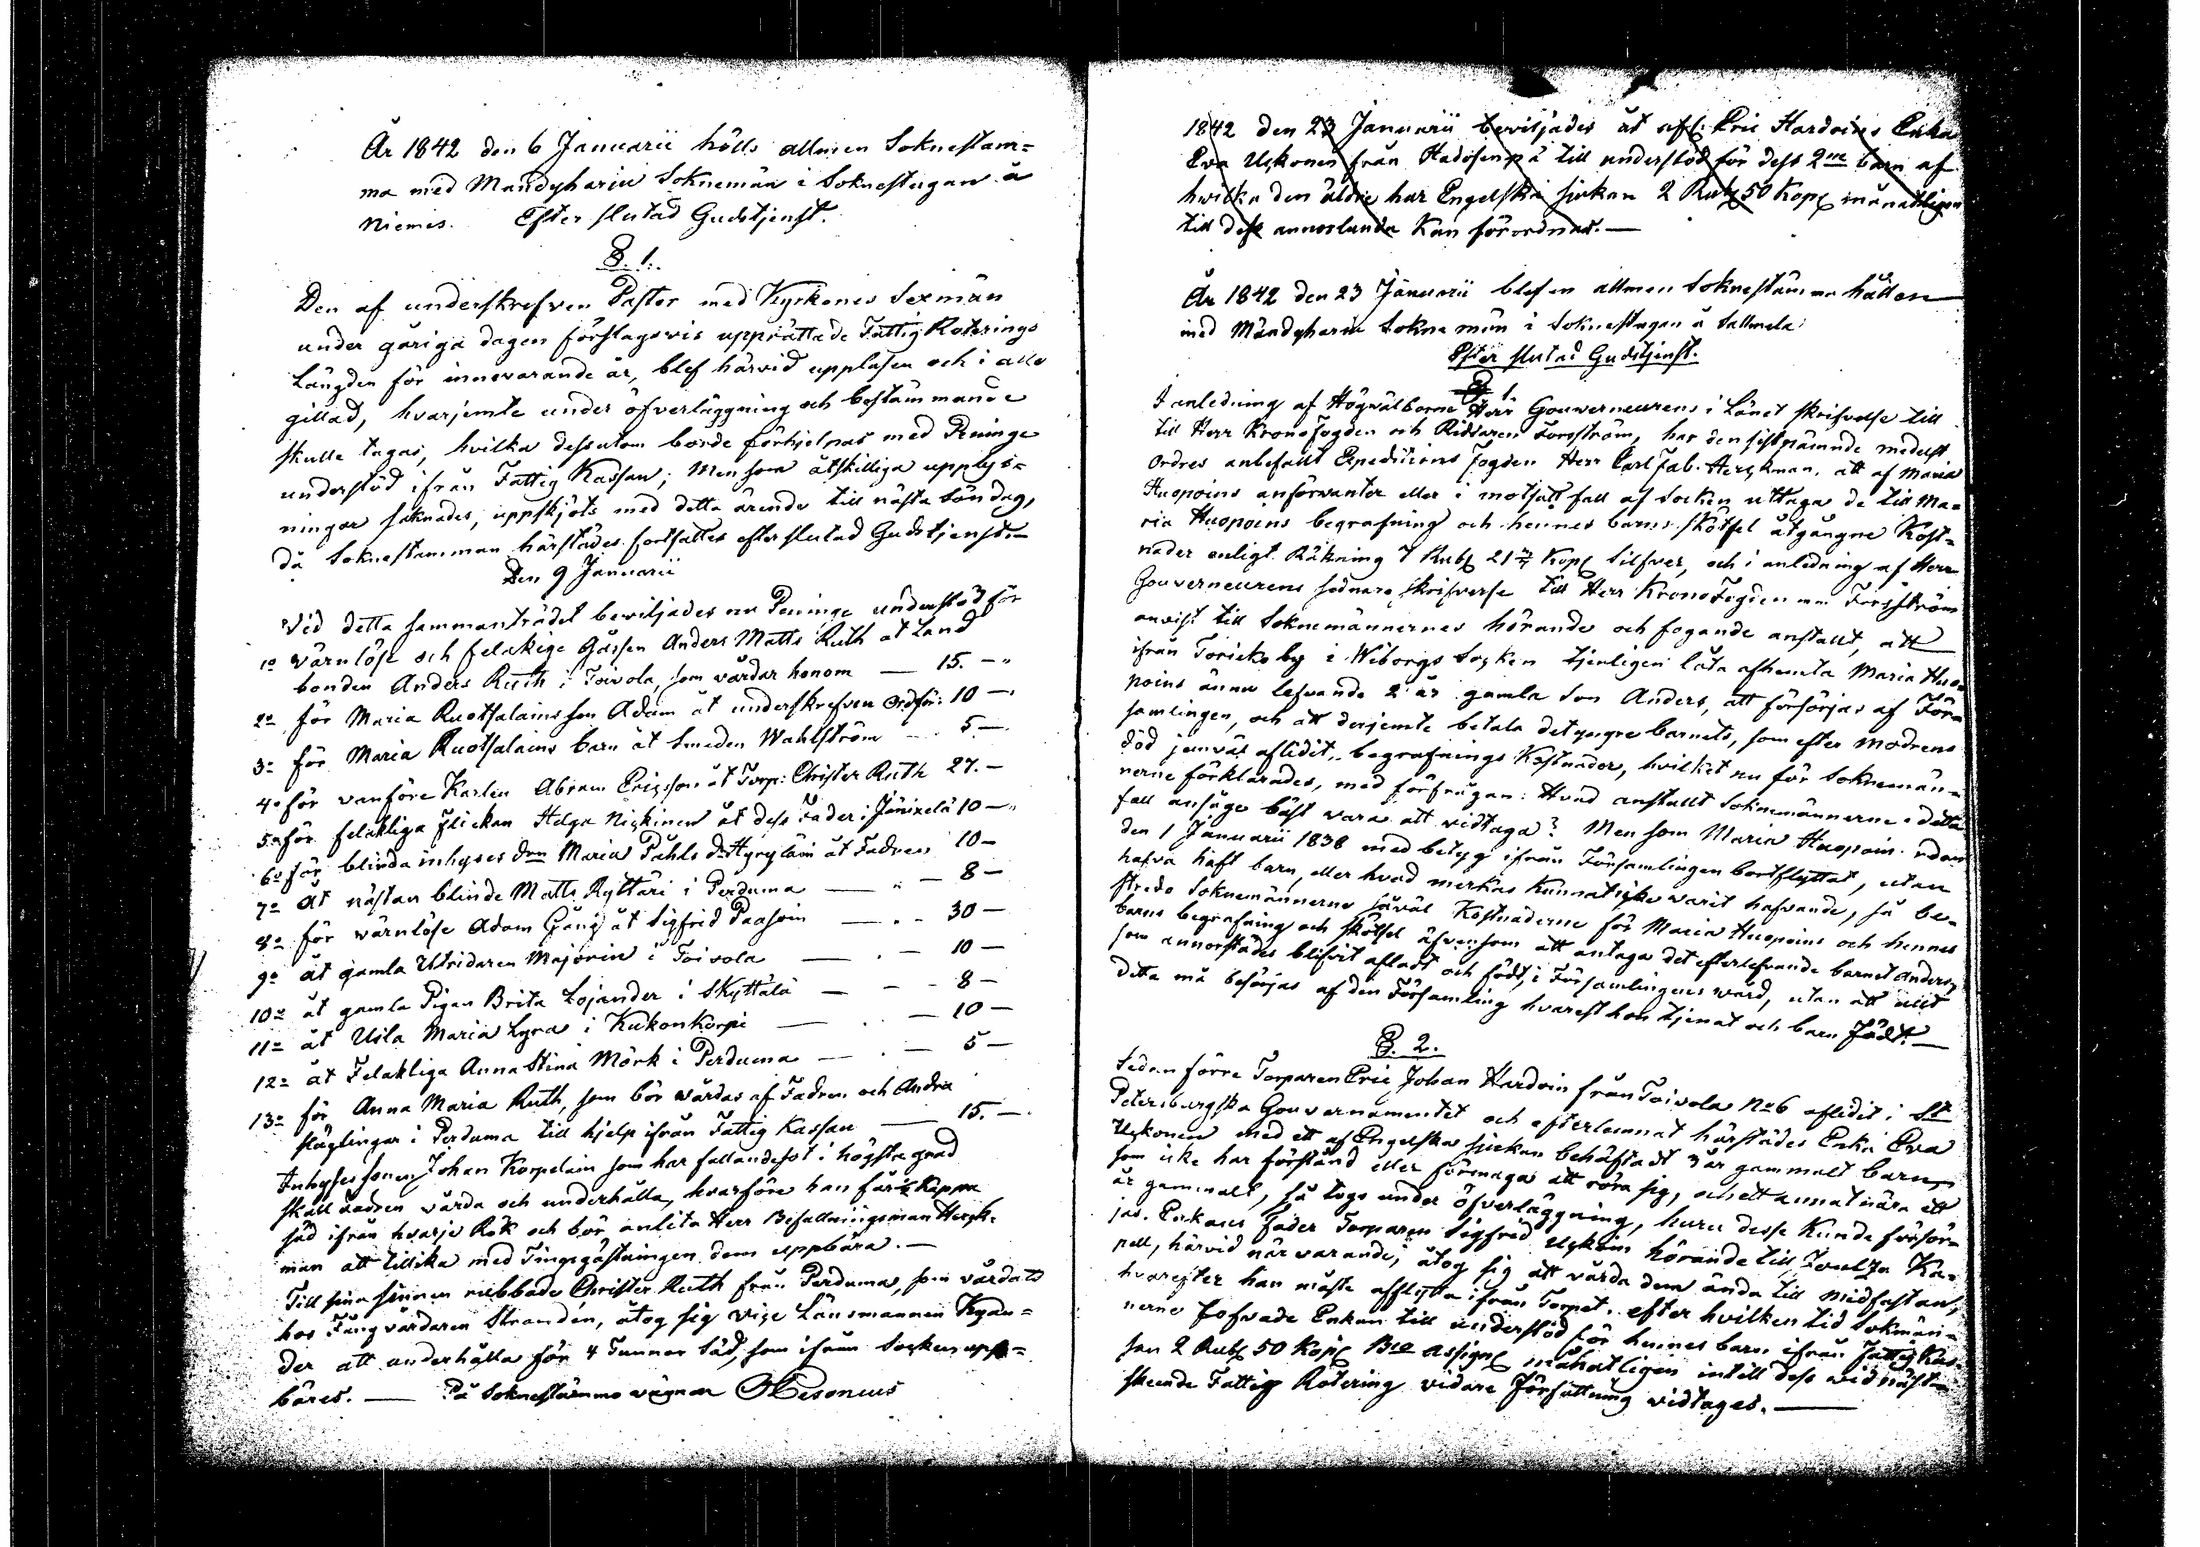 År 1842 den 6 Januarii hölls allmen Soknestäm=
ma med Mandtgharin Soknemän i Soknestugan å
Niemis. Efter slutad Gudstjenst.
§. 1.
Den af underskrefven Pastor med Kyrkones Sexmän
under gåriga dagen förslagsvis upprättade Fattig Roterings
Längden för innevarande år, blef härvid uppläsen och i allo
gillad, hvarjemte under öfverläggning och bestämmande
skulle tagas, hvilka dessutom borde förhjelpas med Peninge
understöd ifrån Fattig Kassan; Men som åtskilliga upplys=
ningar saknades, uppskjöts med detta ärende till nästa Söndag,
då Soknestämman härstädes fortsattes efter slutad Gudstjenst.—
Den 9 Januarii
Vid detta sammanträdet beviljades nu Peninge understöd för
1o wärnlöse och felakige Gåssen Anders Matts Ruth åt Land
bonden Anders Ruth i Toivola, som vårdar honom — 15. —"
2o för Maria Ruotsalains son Adam åt underskrefven Ordför: 10 —"
3o för Maria Ruotsalains barn åt Smeden Wahlström — 5.—
4o för vanföre Karlen Abram Ericsson åt Torp: Christer Ruth 27.—
5o för felaktiga flickan Helga Nickinen åt dess Fader i 10—"
6o för blinda inhyses Maria Påhls dr Hyrylain åt Fadren 10—
7o åt nästan blinde Matts Ryttäri i Perduma — " — 8—
8o för wärnlöse Adam Gäng åt Sigfrid Paasoin — " - 30—
9o åt gamla Utridaren Majorin i Toivola — . — 10—
10o åt gamla Pigan Brita Lojander i Skyttälä — - - 8—
11o åt Usla Maria Lyra i Kukonkorpi — . — 10—
12o åt Felaktiga Anna Stina Mörk i Perduma — . — 5—
13o för Anna Maria Ruth, som bör vårdas af Fadren och Andra
släglingar i Perduma till hjelp ifrån Fattig Kassan — 15.—
Inhyses sonen Johan Korpelain som har fallandesot i högsta grad
skall Fadren vårda och underhålla, hvarföre han får ½ Kappa
säd ifrån hvarje Rök och bör anlita Herr Befallningsman Herck=
man att tillika med Tingsgästningen dem uppbära.—
Till sina sinnen rubbade Christer Ruth från Perduma, som vårdats
hos Fångvårdaren Strandén, åtog sig vice Länsmannen Kyan=
der att underhålla för 4 Tunnor Säd, som ifrån Socken upp=
bäres. — På Soknestämmo vägnar Hesonius
1842 den 23 Januarii beviljades åt afl: Eric Hardoins Enka
Eva Uckonen från till understöd för dess 2ne barn af
hwilka den äldre har Engelska sjukan 2 Rub 50 Kop månatligen
till dess annorlunda kan förordnas.—
År 1842 den 23 Januarii blef en allmen Soknestämma hållen
med Mandtgharin Soknemän i Soknestugan å Sallmela
Efter slutad Gudstjenst.
§ 1.
I anledning af Högvälborne Herr Gouverneurens i Länet skrifvelse till
till Herr Kronofogden och Riddaren Forsström, har den sistnämnde medelst
Ordres anbefallt Expeditions Fogden Herr Carl Fab. Herckman, att af Maria
Huopoins anförwanter eller i motsatt fall af Socken uttaga de till Ma=
ria Huopoins begrafning och hennes barns skötsel åtgångne Kost=
nader enligt Räkning 7 Rub 21 Kop Silfver, och i anledning af Herr
Gouverneurens sednare skrifverse till Herr Kronofogden Forsström
anvist till Soknemännernes hörande och fogande anstallt, att
ifrån Toricko by i Wiborgs Socken tjenligen låta afhemta Maria Huo=
poins ännu lefvande 2 år gamla Son Anders, att försörjas af För=
samlingen, och att derjemte betala det yngre barnets, som efter modrens
död jemväl aflidit, begrafnings Kostnader, hvilket nu för Soknemän=
nerne förklarades, med förfrågan: Hvad anstallt Soknemännerne i detta
fall ansåge bäst vara att vidtaga? Men som Maria Huopoin redan
den 1 Januarii 1838 med betyg ifrån Församlingen bortflyttat, utan
hafva haft barn, eller hvad merkas kunnat icke warit hafvande, så be=
stredo Soknemännerne såväl Kostnaderne för Maria Huopoins och hennes
barns begrafning och skötsel äfvensom att antaga det efterlefvande barnet Anders,
som annorstädes blifvit afladt och födt, i Församlingens wård, utan att allt
detta må besörjas af den Församling hvarest hon tjenat och barn födt.—
§. 2.
Sedan förre Torparen Eric Johan Hardoin från Toivola No 6 aflidit i St
Petersburgska Gouvernamentet och efterlemnat härstädes Enka Eva
Uckonen med ett af Engelska sjukan behäftadt 3 år gammalt barn,
som icke har förstånd eller förmåga att röra sig, och ett annat nära ett
år gammalt, så togs under öfverläggning, huru desse kunde försör=
jas. Enkans Fader Torparen Sigfrid Uckoin hörande till Ka=
pell, härvid närvarande, åtog sig att vårda dem ända till Midfastan,
hvarefter han måste afflytta ifrån Torpet, efter hvilken tid Sokmän=
nerne lofvade Enkan till understöd för hennes barn ifrån Fattig Kas=
san 2 Rub 50 Kop Bco Assign månatligen intill dess wid nästa
skeende Fattig Rotering vidare författning vidtages.—